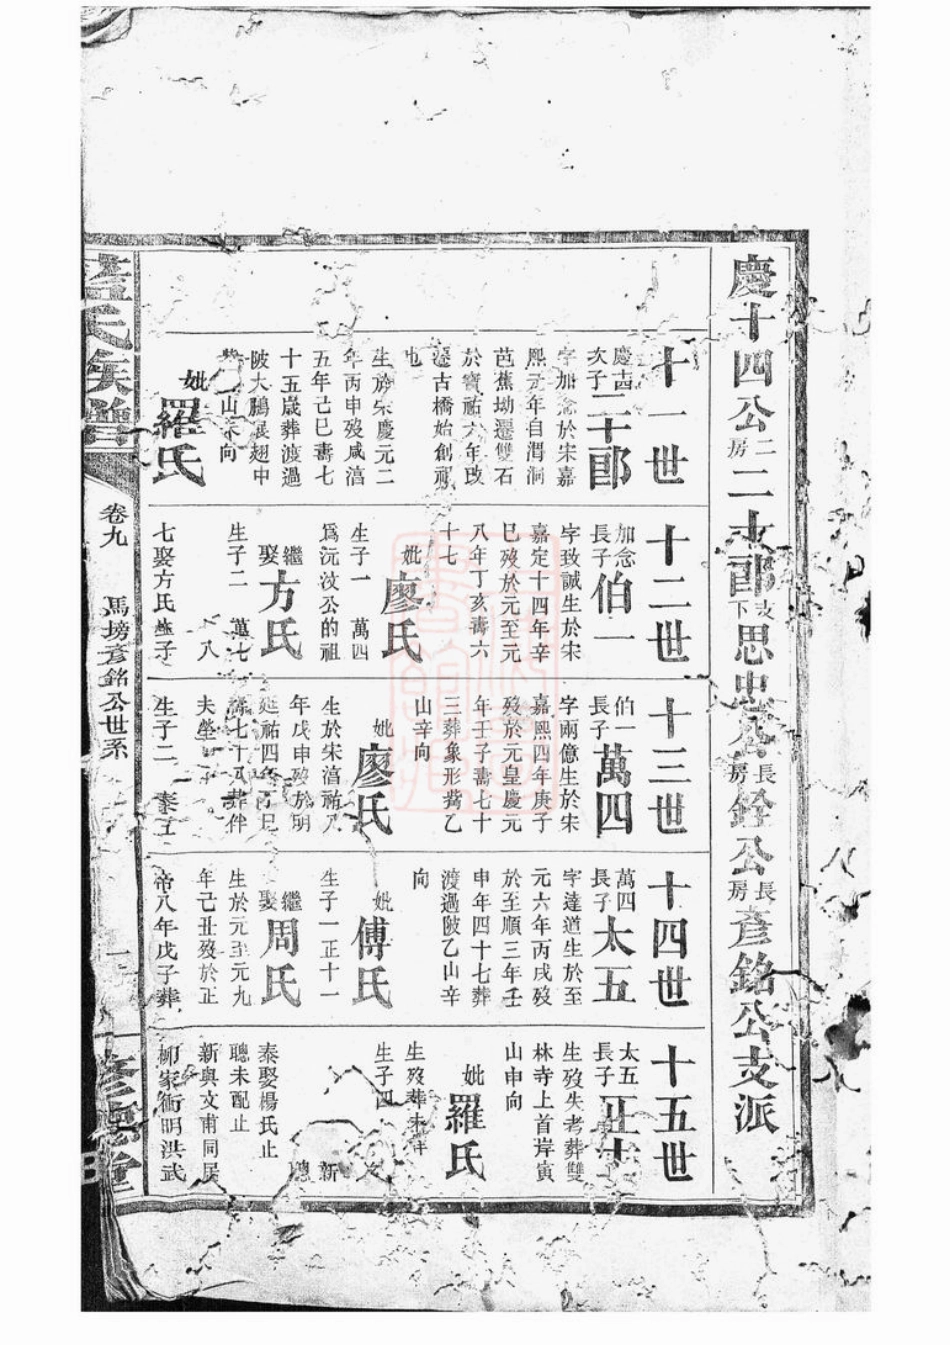 慶十四公二房二十郎支下思忠公長房銓公長房彥銘公支派
十一世
慶十四次子二十郎
字加念於宋嘉
熙元年自渭洞
芭蕉坳遷雙石
於寶祐六年改
遷古橋始創祠
也
生於宋慶元二
年丙申歿咸淳
五年己巳壽七
十五歲葬渡過
陂大鵬展翅中
山未向
妣羅氏
十二世
加念長子伯一
字致誠生於宋
嘉定十四年辛
巳歿於元至元
八年丁亥壽六
十七
妣廖氏
生子一 萬四
爲沅汶公的祖
繼娶方氏
生子二 萬七
八
七娶方氏生子
十三世
伯一長子萬四
字兩億生於宋
嘉熙四年庚子
歿於元皇慶元
年壬子壽七十
三葬象形嘴乙
山辛向
妣廖氏
生於宋淳祐八
年戊申歿於明
延祐四年丁巳
壽七十八葬伴
夫塋
生子二 泰五
十四世
萬四長子太五
字達道生於至
元六年丙戌歿
於至順三年壬
申年四十七葬
渡過陂乙山辛
向
妣傅氏
生子一正十一
繼娶周氏
生於元至元九
年己丑歿於正
帝八年戊子葬
十五世
太五長子正十
生歿失考葬雙
林寺上首岸寅
山申向
妣羅氏
生歿葬未詳
生子四
文
新
聰
泰娶楊氏止
聰未配止
新與文甫同居
柳家衝明洪武
藍氏族譜
卷九 馬塝彥銘公世系